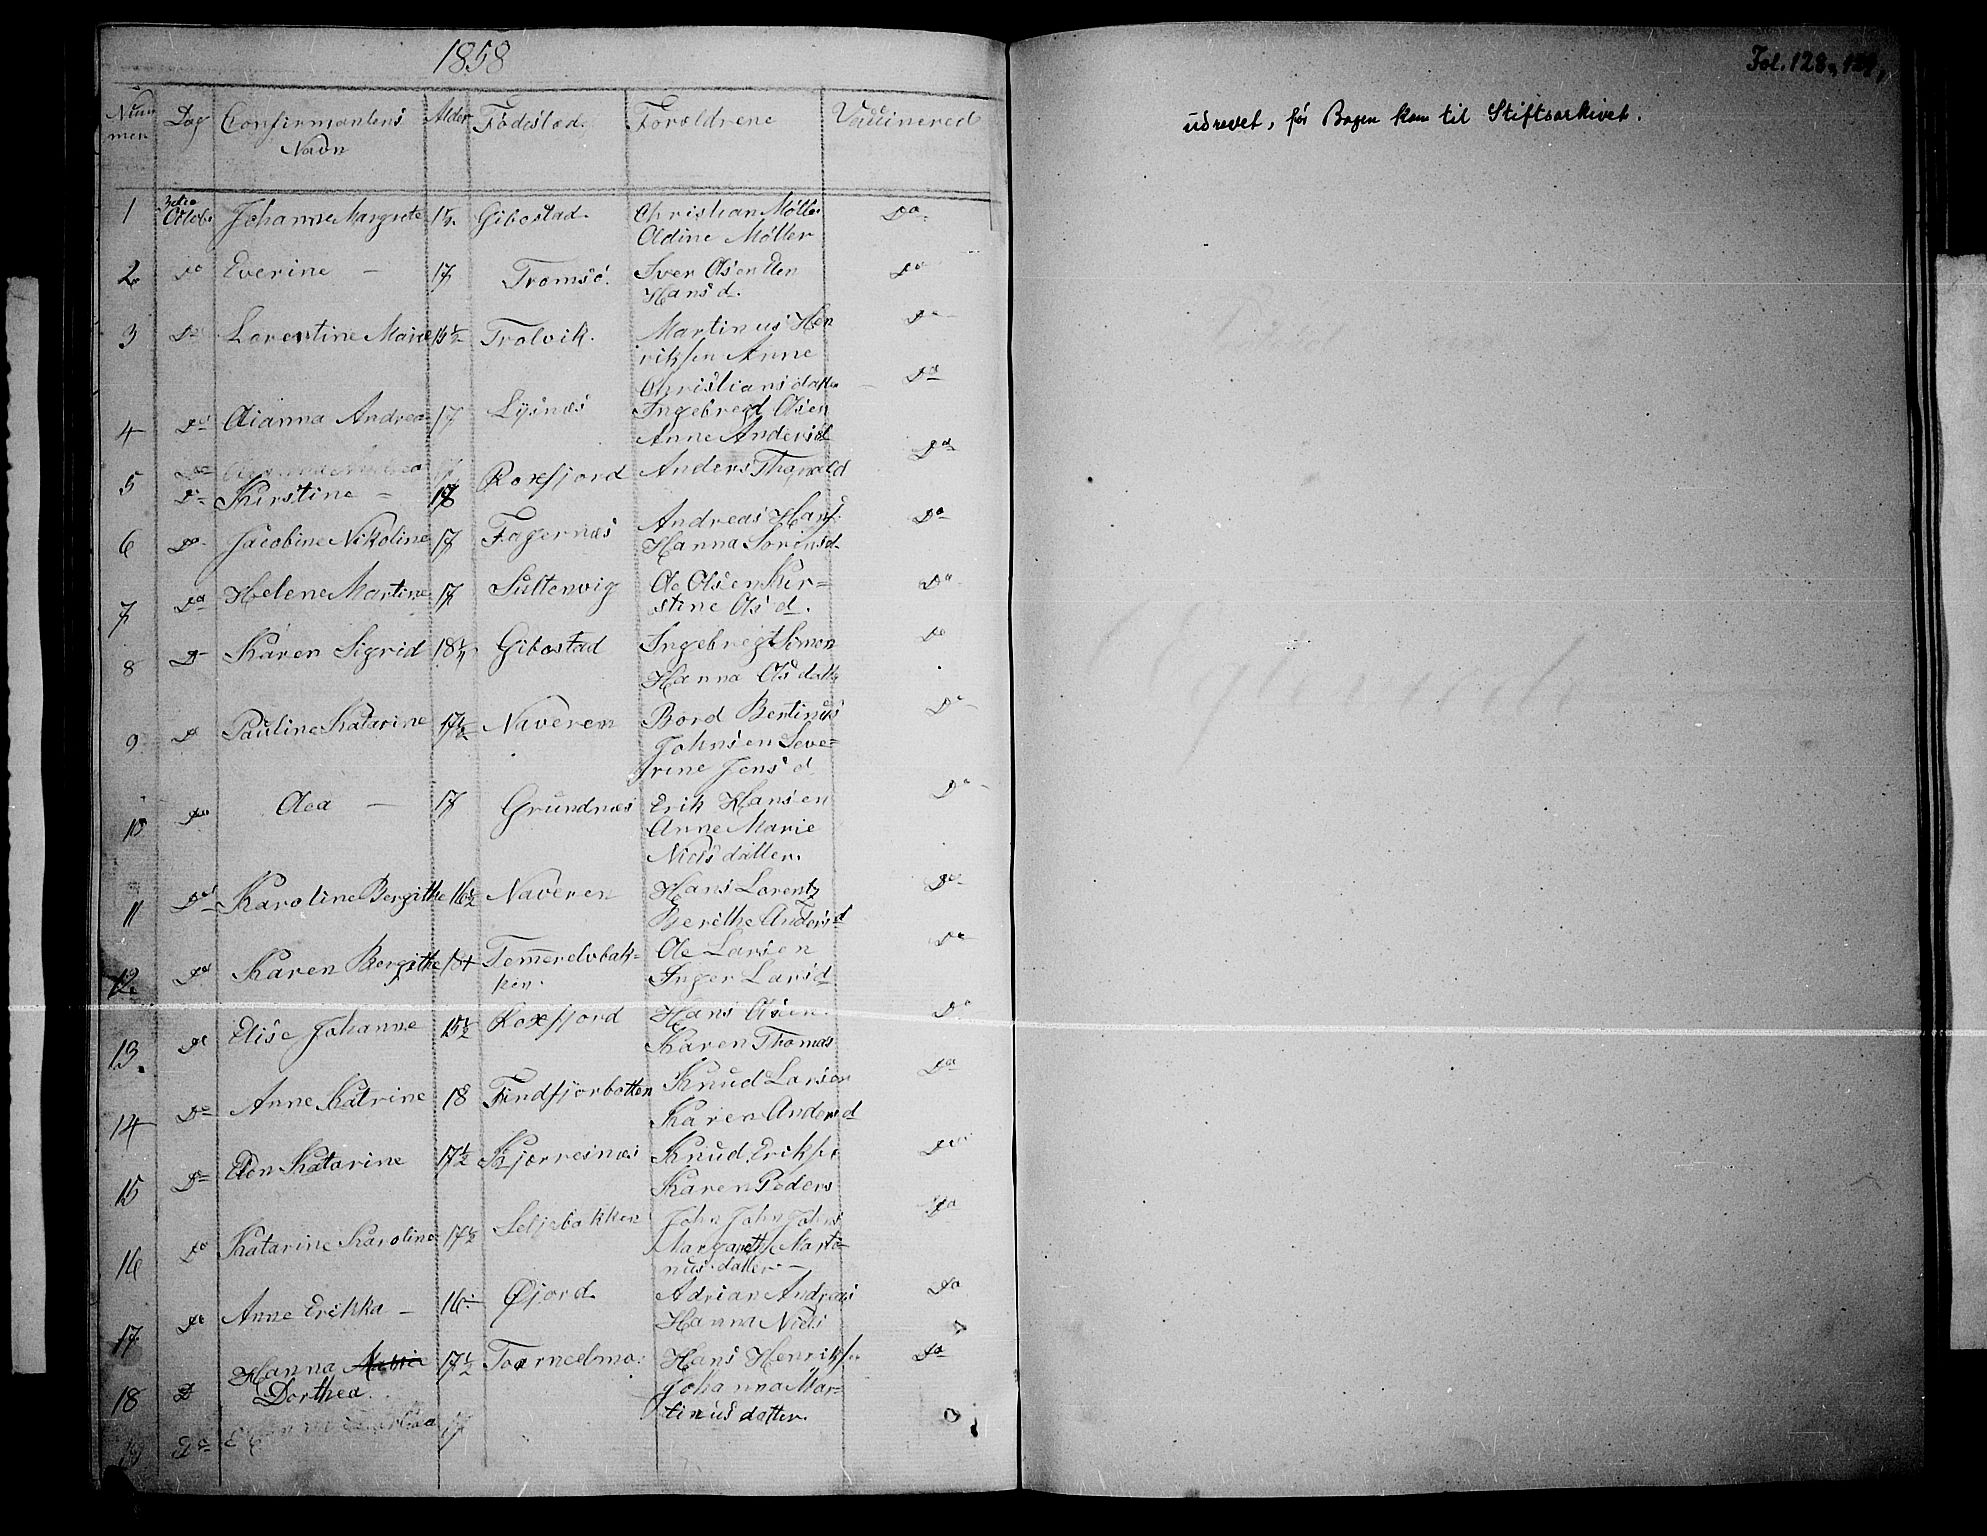 1858
Num Dag Confirmantens Alder Fødestad. Foræaldrene Vaccinered
mer Navn
1 Octobr Johanne Margrete Gibostad. Christian Møller Do
Oldine Møller
2 Do Everine — 17 Tromsö. Iver Olsen Elen Do
Hans d.
3 Do Lorentine Marie 15½ Trolvik. Martinus Hen Do
riksen Anne
Christians datter Do
4 Do Andrea 17 Lysnæs Ingebregt Olsen
Anne Andersd
5 Do
Do Kirstine — 18 Roxfjord Anders Do
6 Do Jacobine Nikoline 17 Fagernæs Andreas Hans Do
Hanna Sorensd
7 Do Helene Martine 17 Sultenvig Ole Olsen Kir= Do
stine Ols d.
8 D Karen Sigrid Gibostad Ingebregt Simon Do
Hanna Ols datter
9 D Pauline Katarine 17½ Naveren Bord Bertinus Do
Johnsen Seve=
rine Jens d
10 Do Olea — 17 Grundnæs Erik Hansen Do
Anne Marie
Niels datter.
11 Do Karoline Bergithe 16½ Naveren Hans Lorentz Do
Berithe Andersd
12 Do Karen Bergithe Temmerelvbak- Ole Larsen Do
ken. Inger Larsd
13. Do Elise Johanne 15½ Roxfjord Hans Olsen. Do
Karen Thomas
14 Do Anne Katrine 18 Findfjorbotten Knud Larsen Do
Karen Andersd
15 Do Elen Katarine 17½ Kjerresnæs Knud Eriks Do
Karen Peders
16 Do Katarine Karoline 17½ Seljebakken John John Johns Do
Margarethe Marti-
nus datter. —
17 Do Anne Erikka — 16 Øjord Adrian Andreas Do
Hanna Niels
18 D Hanna Marie 17½ Hans Henriks Do
Dorthea. Johanna Mar=
tinus datter.
19 Do 17
Fol. 128, 129,
udrevet, før Bogen kom til Stiftsarkivet.